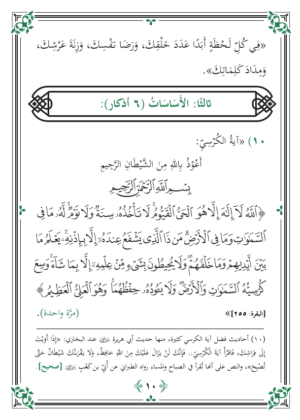 «فِي كُلِّ لَحْظَةٍ أَبَدًا عَدَدَ خَلْقِكَ، وَرِضَا نَفْسِكَ، وَزِنَةَ عَرْشِكَ،
وَمِدَادَ كَلِمَاتِكَ».
ثالثًا: الأَسَاسَاتُ (٦ أذكار):
١٠) «آيَةُ الكُرْسِيِّ:
أَعُوذُ بِاللهِ مِنَ الشَّيْطَانِ الرَّجِيمِ
بِسْمِ اللَّهِ الرَّحْمَٰنِ الرَّحِيمِ
﴿اللَّهُ لَا إِلَٰهَ إِلَّا هُوَ الْحَيُّ الْقَيُّومُ لَا تَأْخُذُهُ سِنَةٌ وَلَا نَوْمٌ لَّهُ مَا فِي
السَّمَٰوَٰتِ وَمَا فِي الْأَرْضِ مَن ذَا الَّذِي يَشْفَعُ عِندَهُ إِلَّا بِإِذْنِهِ يَعْلَمُ مَا
بَيْنَ أَيْدِيهِمْ وَمَا خَلْفَهُمْ وَلَا يُحِيطُونَ بِشَيْءٍ مِّنْ عِلْمِهِ إِلَّا بِمَا شَاءَ وَسِعَ
كُرْسِيُّهُ السَّمَٰوَٰتِ وَالْأَرْضَ وَلَا يَئُودُهُ حِفْظُهُمَا وَهُوَ الْعَلِيُّ الْعَظِيمُ﴾
[البقرة: ٢٥٥]» (مرّة واحدة).
(١٠) أحاديث فضل آية الكرسي كثيرة، منها حديث أبي هريرة عند البخاري: «إِذَا أَوَيْتَ
إِلَى فِرَاشِكَ، فَاقْرَأْ آيَةَ الْكُرْسِيِّ.. فَإِنَّكَ لَنْ يَزَالَ عَلَيْكَ مِنَ اللهِ حَافِظٌ، وَلَا يَقْرَبَنَّكَ شَيْطَانٌ حَتَّى
تُصْبِحَ»، والنص على أنها تُقرأ في الصباح والمساء رواه الطبراني عن أُبَيّ بن كعب [صحيح].
١٠